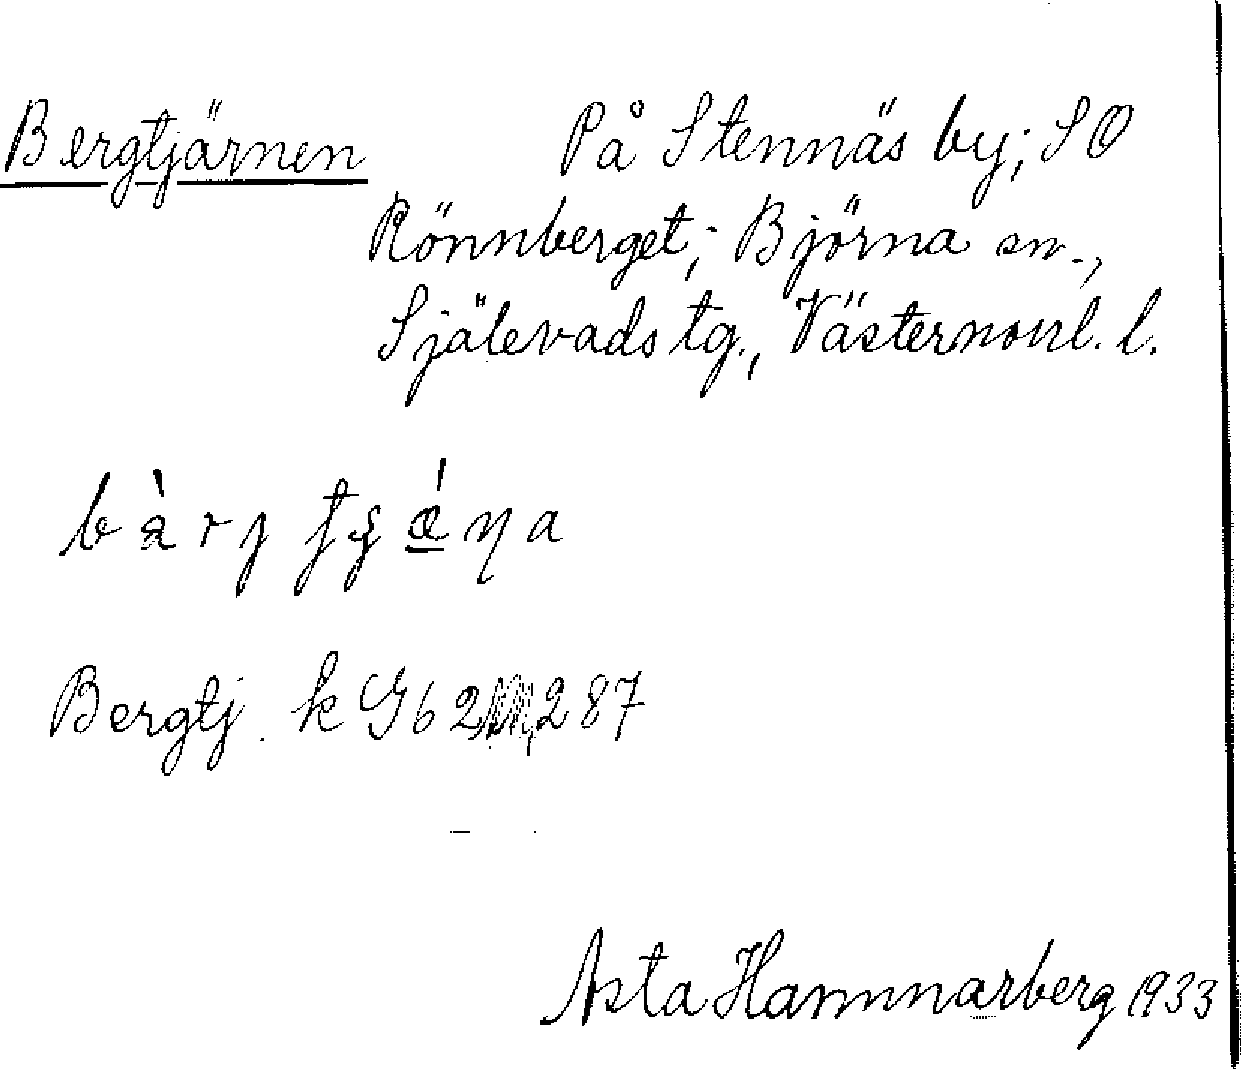 Bergtjärnen På Stennäs by; SO
Rönnberget; Björna sn.,
Själevads tg., Västernorrl. l.
Bergtj. k G62, 287
Asta Hammarberg 1933